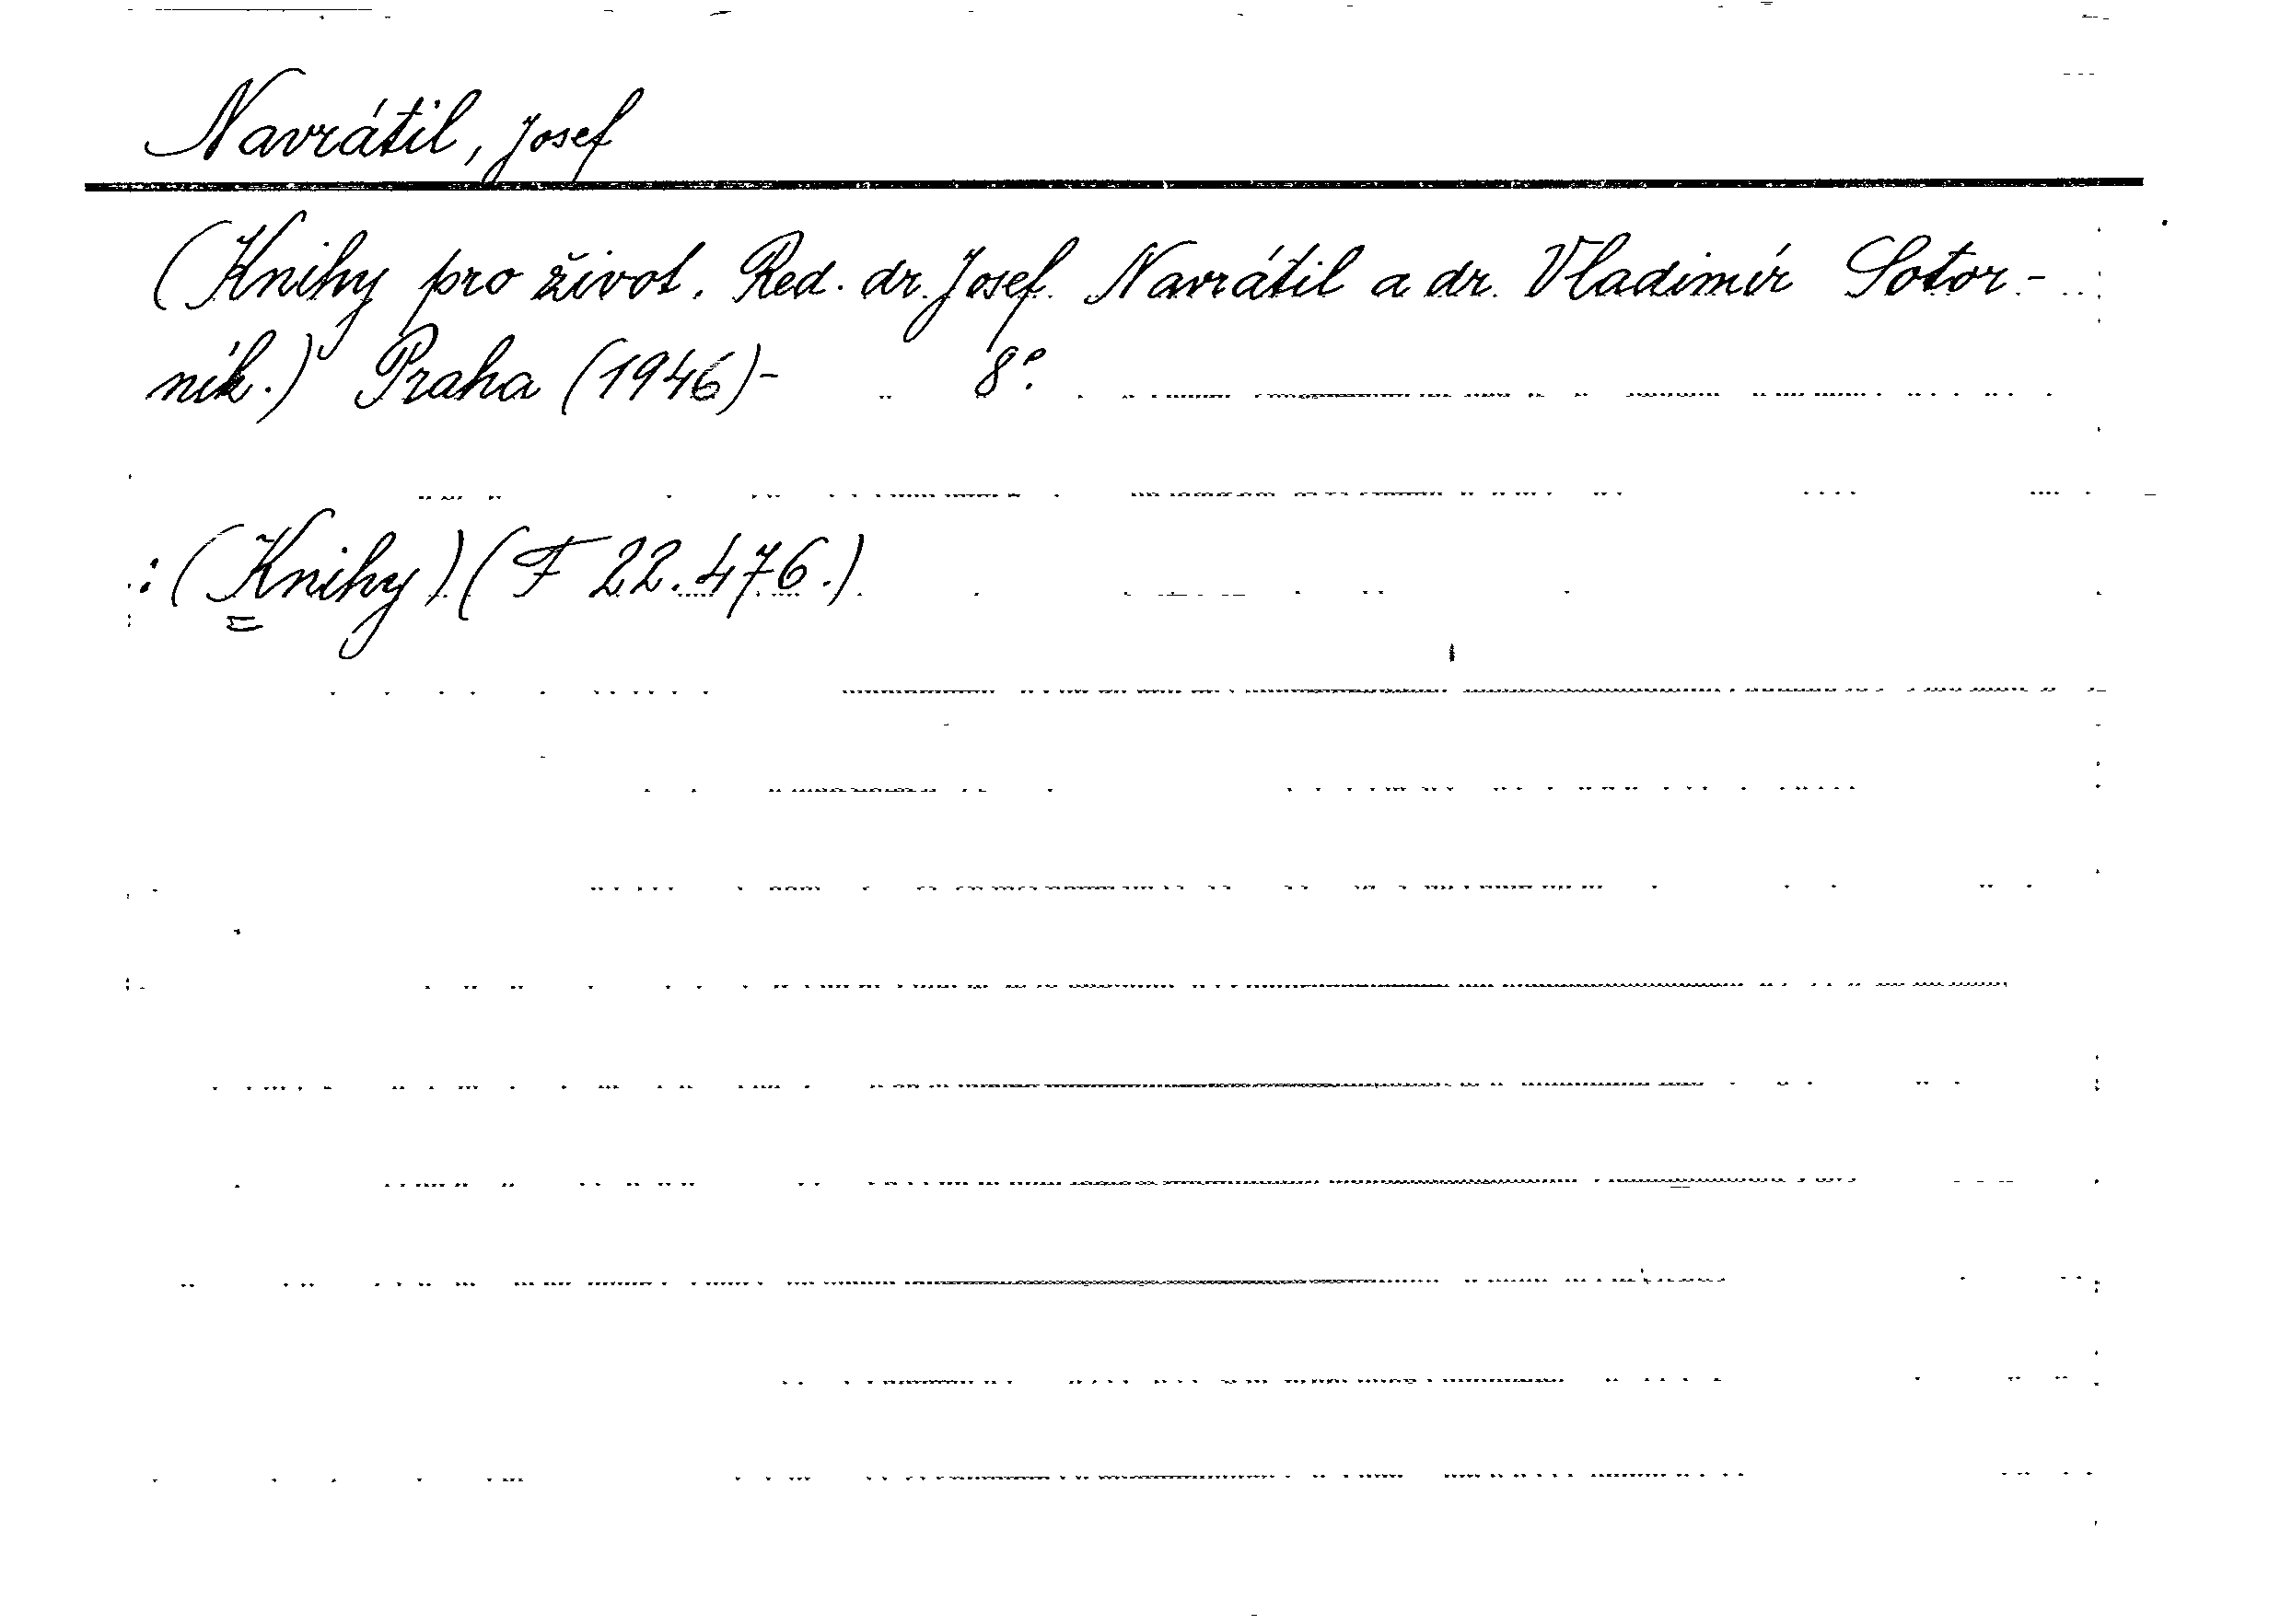 Navrátil, Josef
(Knihy pro život. Red. dr. Josef Navrátil a dr. Vladimír Sotor-
ník.) Praha (1946)- 8°.
:(Knihy) (F 22.476.)